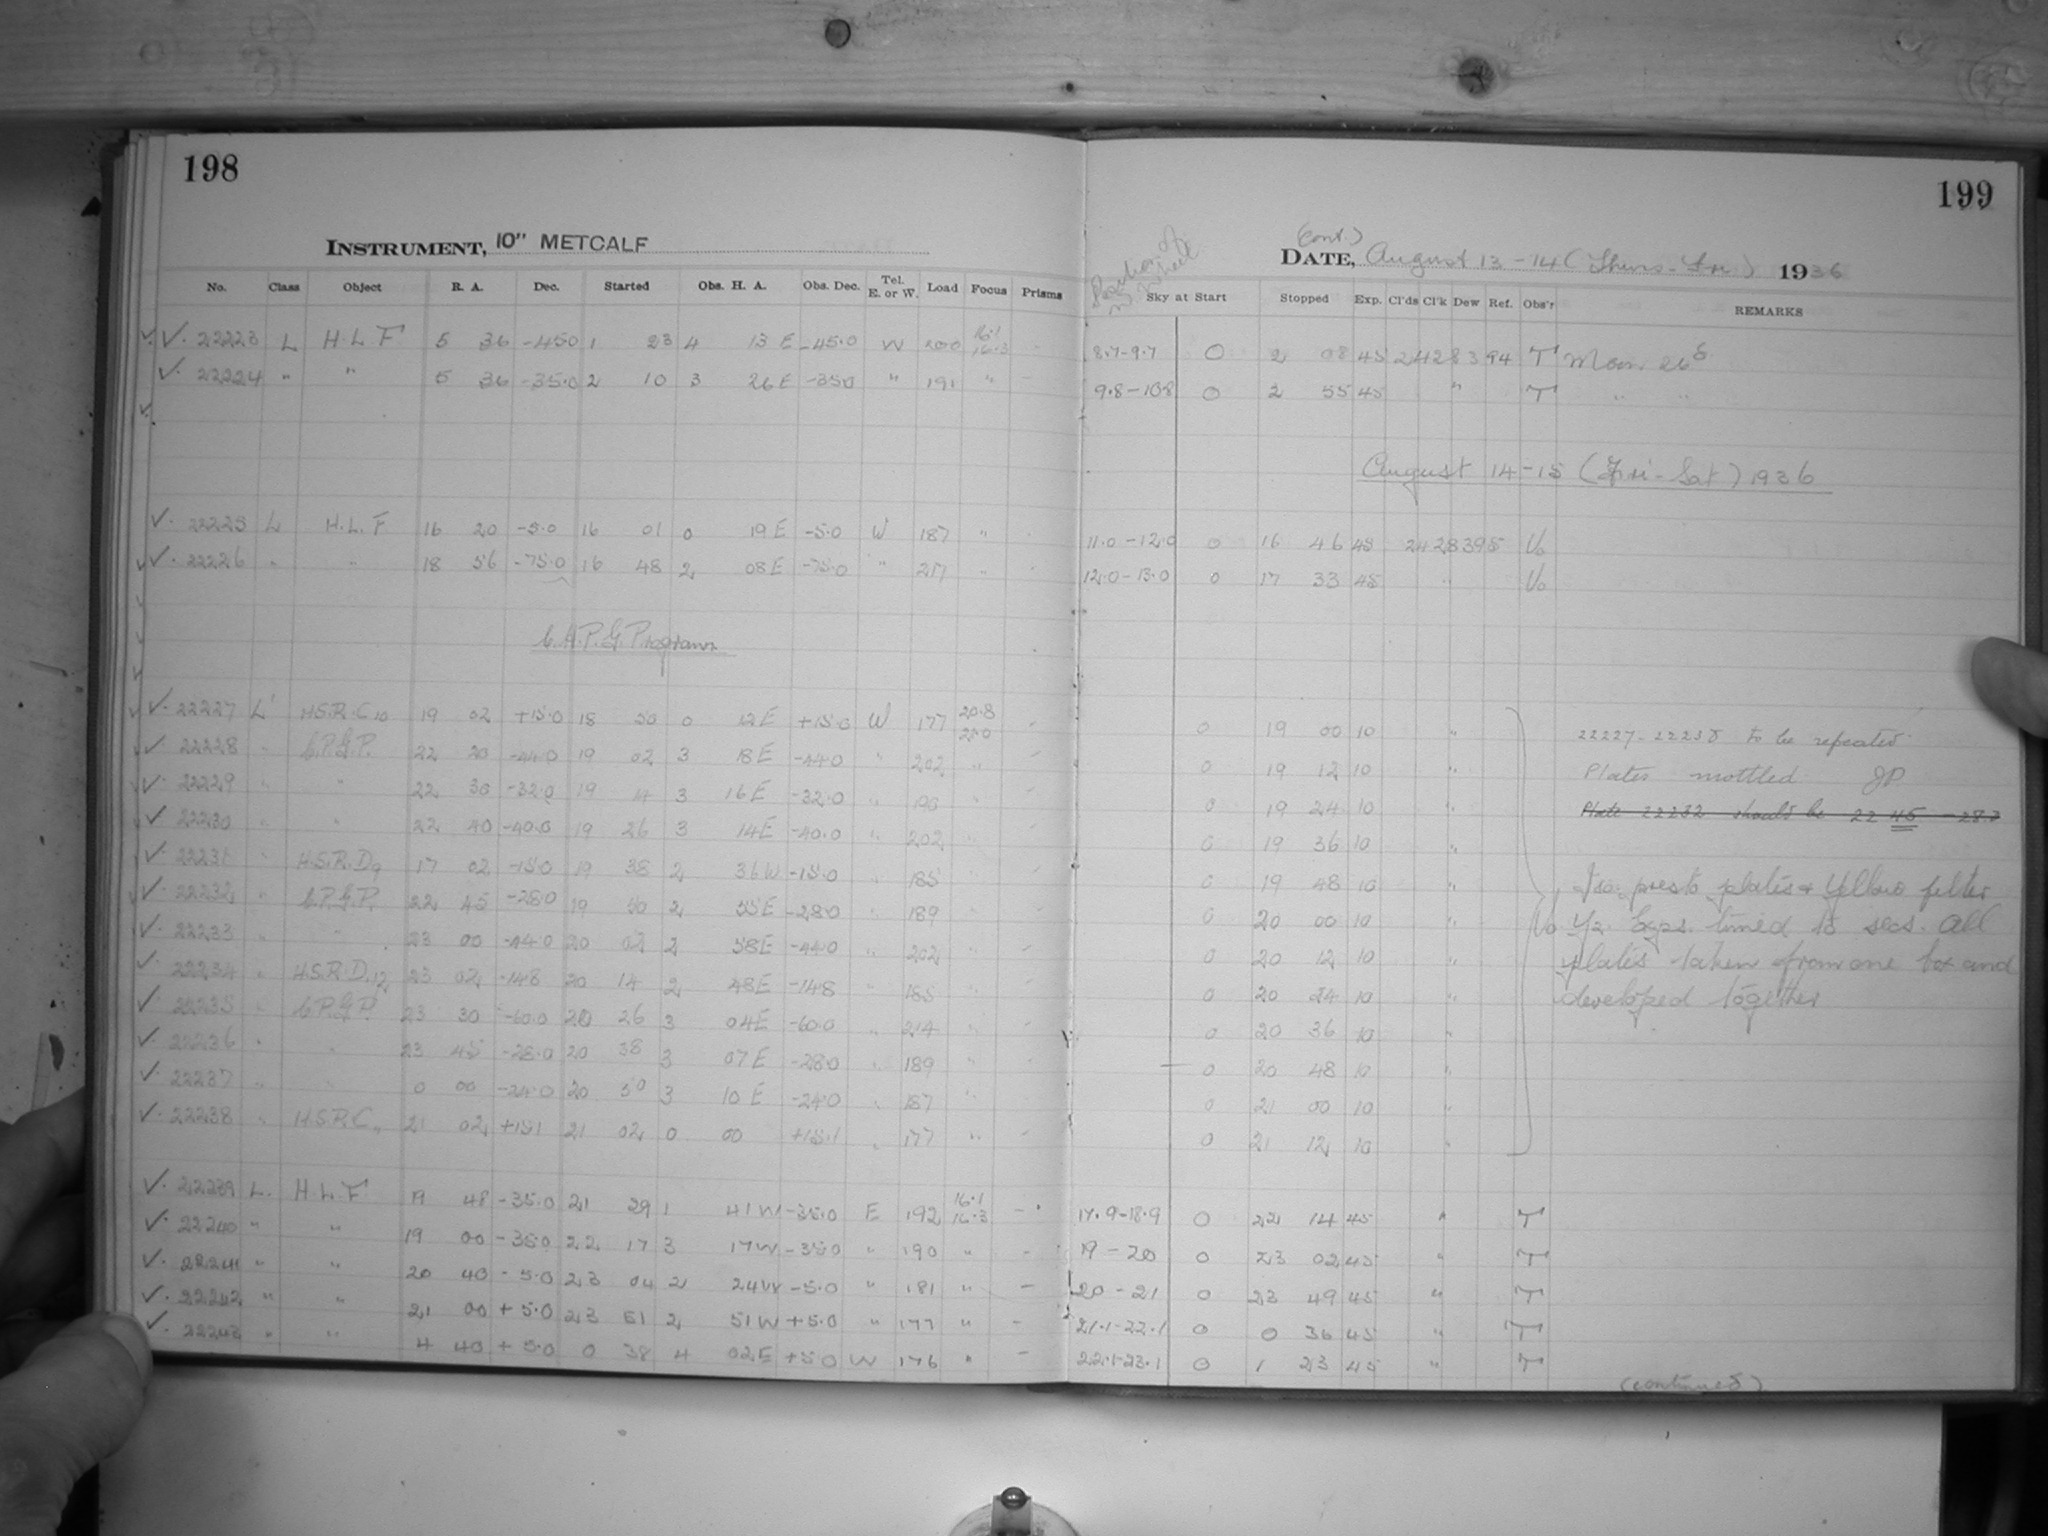 198
INSTRUMENT, 10" METCALF
No. Class Object R. A. Dec. Started Obs. H. A. Obs. Dec. Tel. E. or W. Load Focus Prisms
✓. 22223 L H.L.F 5 36 -45.0 1 23 4 13 E -45.0 W 200 16.1 16.3 -
✓. 22224 " " 5 36 -35.0 2 10 3 26 E -35.0 " 191 " -
✓. 22225 L H.L.F 16 20 -5.0 16 01 0 19 E -5.0 W 187 "
✓. 22226 " " 18 56 -75.0 16 48 2 08 E -75.0 " 217 "
✓. 22227 L H.S.R.C 10 19 02 +15.0 18 50 0 12 E +15.0 W 177 20.8
✓. 22228 " 22 20 -44.0 19 02 3 18 E -44.0 " 202 "
✓. 22229 " " 22 30 -32.0 19 14 3 16 E -32.0 "
✓. 22230 " " 22 40 -40.0 19 26 3 14 E -40.0 " 202
✓. 22231 " H.S.R.D9 17 02 -15.0 19 38 2 36 W -15.0 " 185
✓. 22232 " 22 45 -28.0 19 50 2 55 E -28.0 " 189
✓. 22233 " " 23 00 -44.0 20 02 2 58 E -44.0 " 202
✓. 22234 " H.S.R.D.12 23 02 -14.8 20 14 2 48 E -14.8 " 185
✓. 22235 " 23 30 -60.0 20 26 3 04 E -60.0 " 214
✓. 22236 " " 23 45 -28.0 20 38 3 07 E -28.0 " 189
✓. 22237 " " 0 00 -24.0 20 50 3 10 E -24.0 " 187
✓. 22238 " H.S.R.C 21 02 +15.1 21 02 0 00 +15.1 " 177 "
✓. 22239 L. H.L.F 19 48 -35.0 21 29 1 41 W -35.0 E 192 16.1 16.3 -
✓. 22240 " " 19 00 -35.0 22 17 3 17 W -35.0 " 190 " -
✓. 22241 " " 20 40 -5.0 23 04 2 24 W -5.0 " 181 " -
✓. 22242 " " 21 00 +5.0 23 51 2 51 W +5.0 " 177 " -
✓. 22243 " " 4 40 +5.0 0 38 4 02 E +5.0 W 176 " -
199
(cont.)
DATE, August 13-14 (Thurs-Fri) 1936
Sky at Start Stopped Exp. Cl'ds Cl'k Dew Ref. Obs'r REMARKS
8.7-9.7 0 2 08 45 24 28 394 T Moon 26d
9.8-10.8 0 2 55 45 " T " "
August 14-15 (Fri-Sat) 1936
11.0-12.0 0 16 46 45 24 28 395 Vo
12.0-13.0 0 17 33 45 " Vo
0 19 00 10 " 22227-22238 to be repeated
0 19 12 10 " Plates mottled JP
0 19 24 10 " Plate 22232 should be 22 45 -28.
0 19 36 10 "
0 19 48 10 " presto plates & Yellow filter
0 20 00 10 Vo Exps. timed to secs. All
0 20 12 10 " plates taken from one box and
0 20 24 10 " developed together
0 20 36 10 "
0 20 48 10 "
0 21 00 10 "
0 21 12 10 "
17.9-18.9 0 22 14 45 " T
19-20 0 23 02 45 " T
20-21 0 23 49 45 " T
21.1-22.1 0 0 36 45 " T
22.1-23.1 0 1 23 45 " T
(continued)